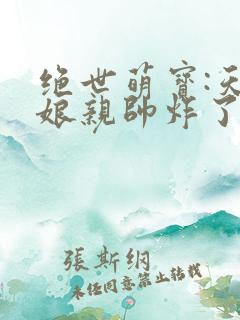 绝世萌寶:天
娘親帥炸了
張斯綱
未經同意禁止转载